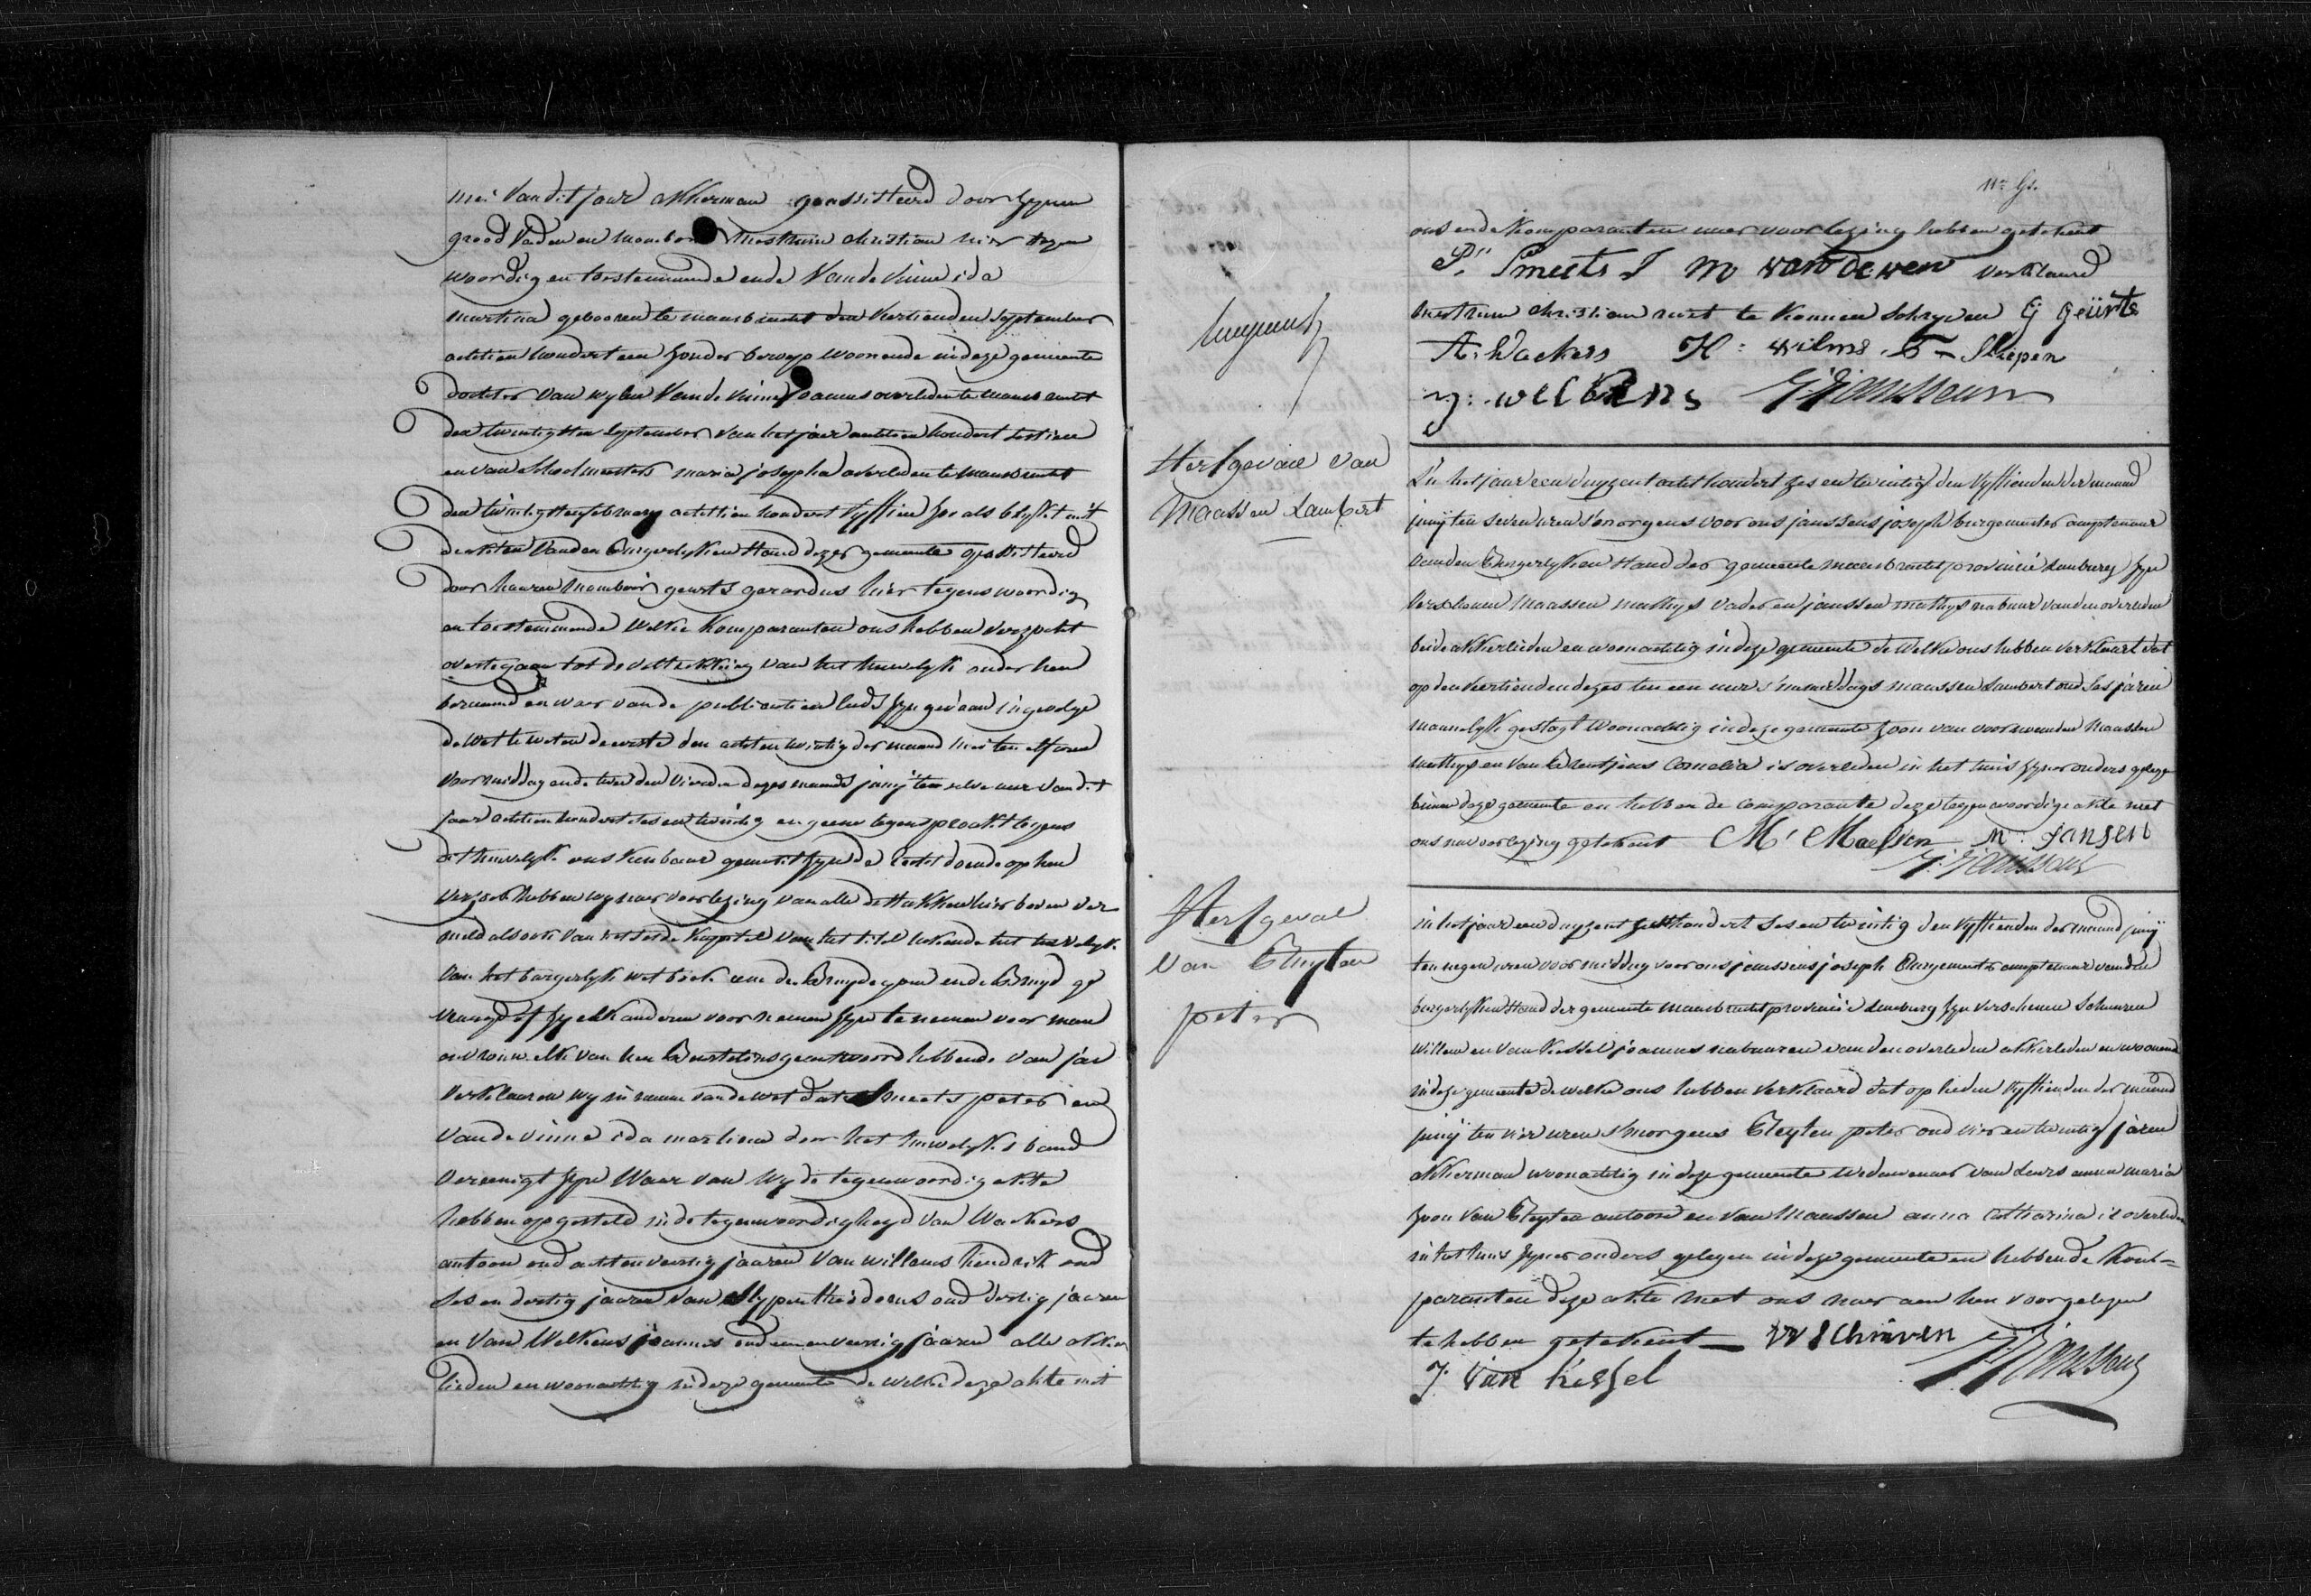 mei van dit jaar akkerman geassisteerd door zynen
groodvader en momboor Mestrum christian hier tegen
woordig en toestemmende ende van de vinne ida
martina gebooren te maasbracht den veertienden september
achtien hondert een zonder beroep woonende in deze gemeente
dochter van wylen van de vinne joannes overleden te maasbracht
den twintigsten september van het jaar achtien hondert
en van schoolmeesters maria josepha overleden te maasbracht
den twintigsten february achttien hondert vyftien zoo als blykt uit
de akten van den Burgerlyken stand dezer gemeente geassisteerd
door haaren momboir geurts gerardus hier tegenswoordig
en toestemmende welke komparanten ons hebben verzocht
overtegaan tot de voltrekking van het huwelyk onder hen
beraamd en waar van de publicatien zyn gedaan ingevolge
de wet te weten de eerste den achtentwintig der maand mei ten elf uren
voormiddag ende twee den vierden dezes maands junij ten elve uur van dit
jaar achtien hondert ses en twintig en geene tegenspraak tegens
dit huwelyk ons kenbaar gemaakt zynde recht doende op hun
verzoek hebben wy naer voorlezing van alle de stukken hier boven ver
meld als ook van het sesde kapittel van het titel het huwelyk
van het burgerlyk wetboek aan de Bruydegom ende Bruyd ge
vraagd of zy elkanderen voornemens zyn te nemen voor man
en vrouw elk van hen geantwoord hebbende van jae
verklaaren wy in naam van de wet dat Smeets peter en
van de vinne ida martina door het huwelyks band
vereenigt zyn waar van wy de tegenwoordige akte
hebben opgesteld in de tegenwoordigheyd van Wackers
antoon oud achtenveertig jaaren van willems hendrik oud
ses en dertig jaaren van Slypen theodorus oud dertig jaaren
en van Welkens joannes oud eenenveertig jaaren alle akker
lieden en woonachtig in deze gemeente de welke deze akte met
ons ende komparanten naer voorlezing hebben getekent
P. Smeets I m van de wen verklaard
Mestrum christian niet te konnen schryven G Geürts
A: Wackers H: wilms T Slepen
J: welkens J Janssens
Sterfgeval van
Maassen Lambert
In het jaar een duyzent acht hondert ses en twintig den vyftienden der maand
junij ten seven uren s'morgens voor ons janssens joseph burgemeester amptenaar
van den Burgerlyken stand der gemeente maasbracht provincie Limburg zyn
verschenen Maassen mathys vader en janssen mathys nabuur van den overleden
beide akkerlieden en woonachtig in deze gemeente de welke ons hebben verklaart dat
op den veertienden dezes ten een uur s'namiddags maassen Lambert oud ses jaren
mannelyk geslagt woonachtig in deze gemeente zoon van voornoemden Maassen
mathys en van Brentjens Cornelia is overleden in het huis zyner ouders gelegen
binnen deze gemeente en hebben de comparante deze tegenwoordige akte met
ons na voorlezing getekent M: Maessen M: Jansen
J. Janssens
Sterfgeval
van Cluyten
peter
in het jaar een duyzent acht hondert ses en twintig den vyftienden der maand junij
ten negen uren voormiddag voor ons janssens joseph Burgemeester amptenaar van den
burgerlyken stand der gemeente maasbracht provincie Limburg zyn verschenen Schreuven
Willem en van Kessel joannes nabuuren van den overleden akkerlieden en woonende
in deze gemeente de welke ons hebben verklaard dat op heden vyftienden der maand
junij ten vier uren s'morgens Cleyten peter oud vier en twintig jaren
akkerman woonachtig in deze gemeente weduwenaer van Leurs anna maria
zoon van Cleyten antoon en van Maassen anna Catharina is overleden
in het huis zyner ouders gelegen in deze gemeente en hebben de Kom=
paranten deze akte met ons naer aen hun voorgelezen
te hebben getekent W Schriven
J. Van Kessel J: Janssens